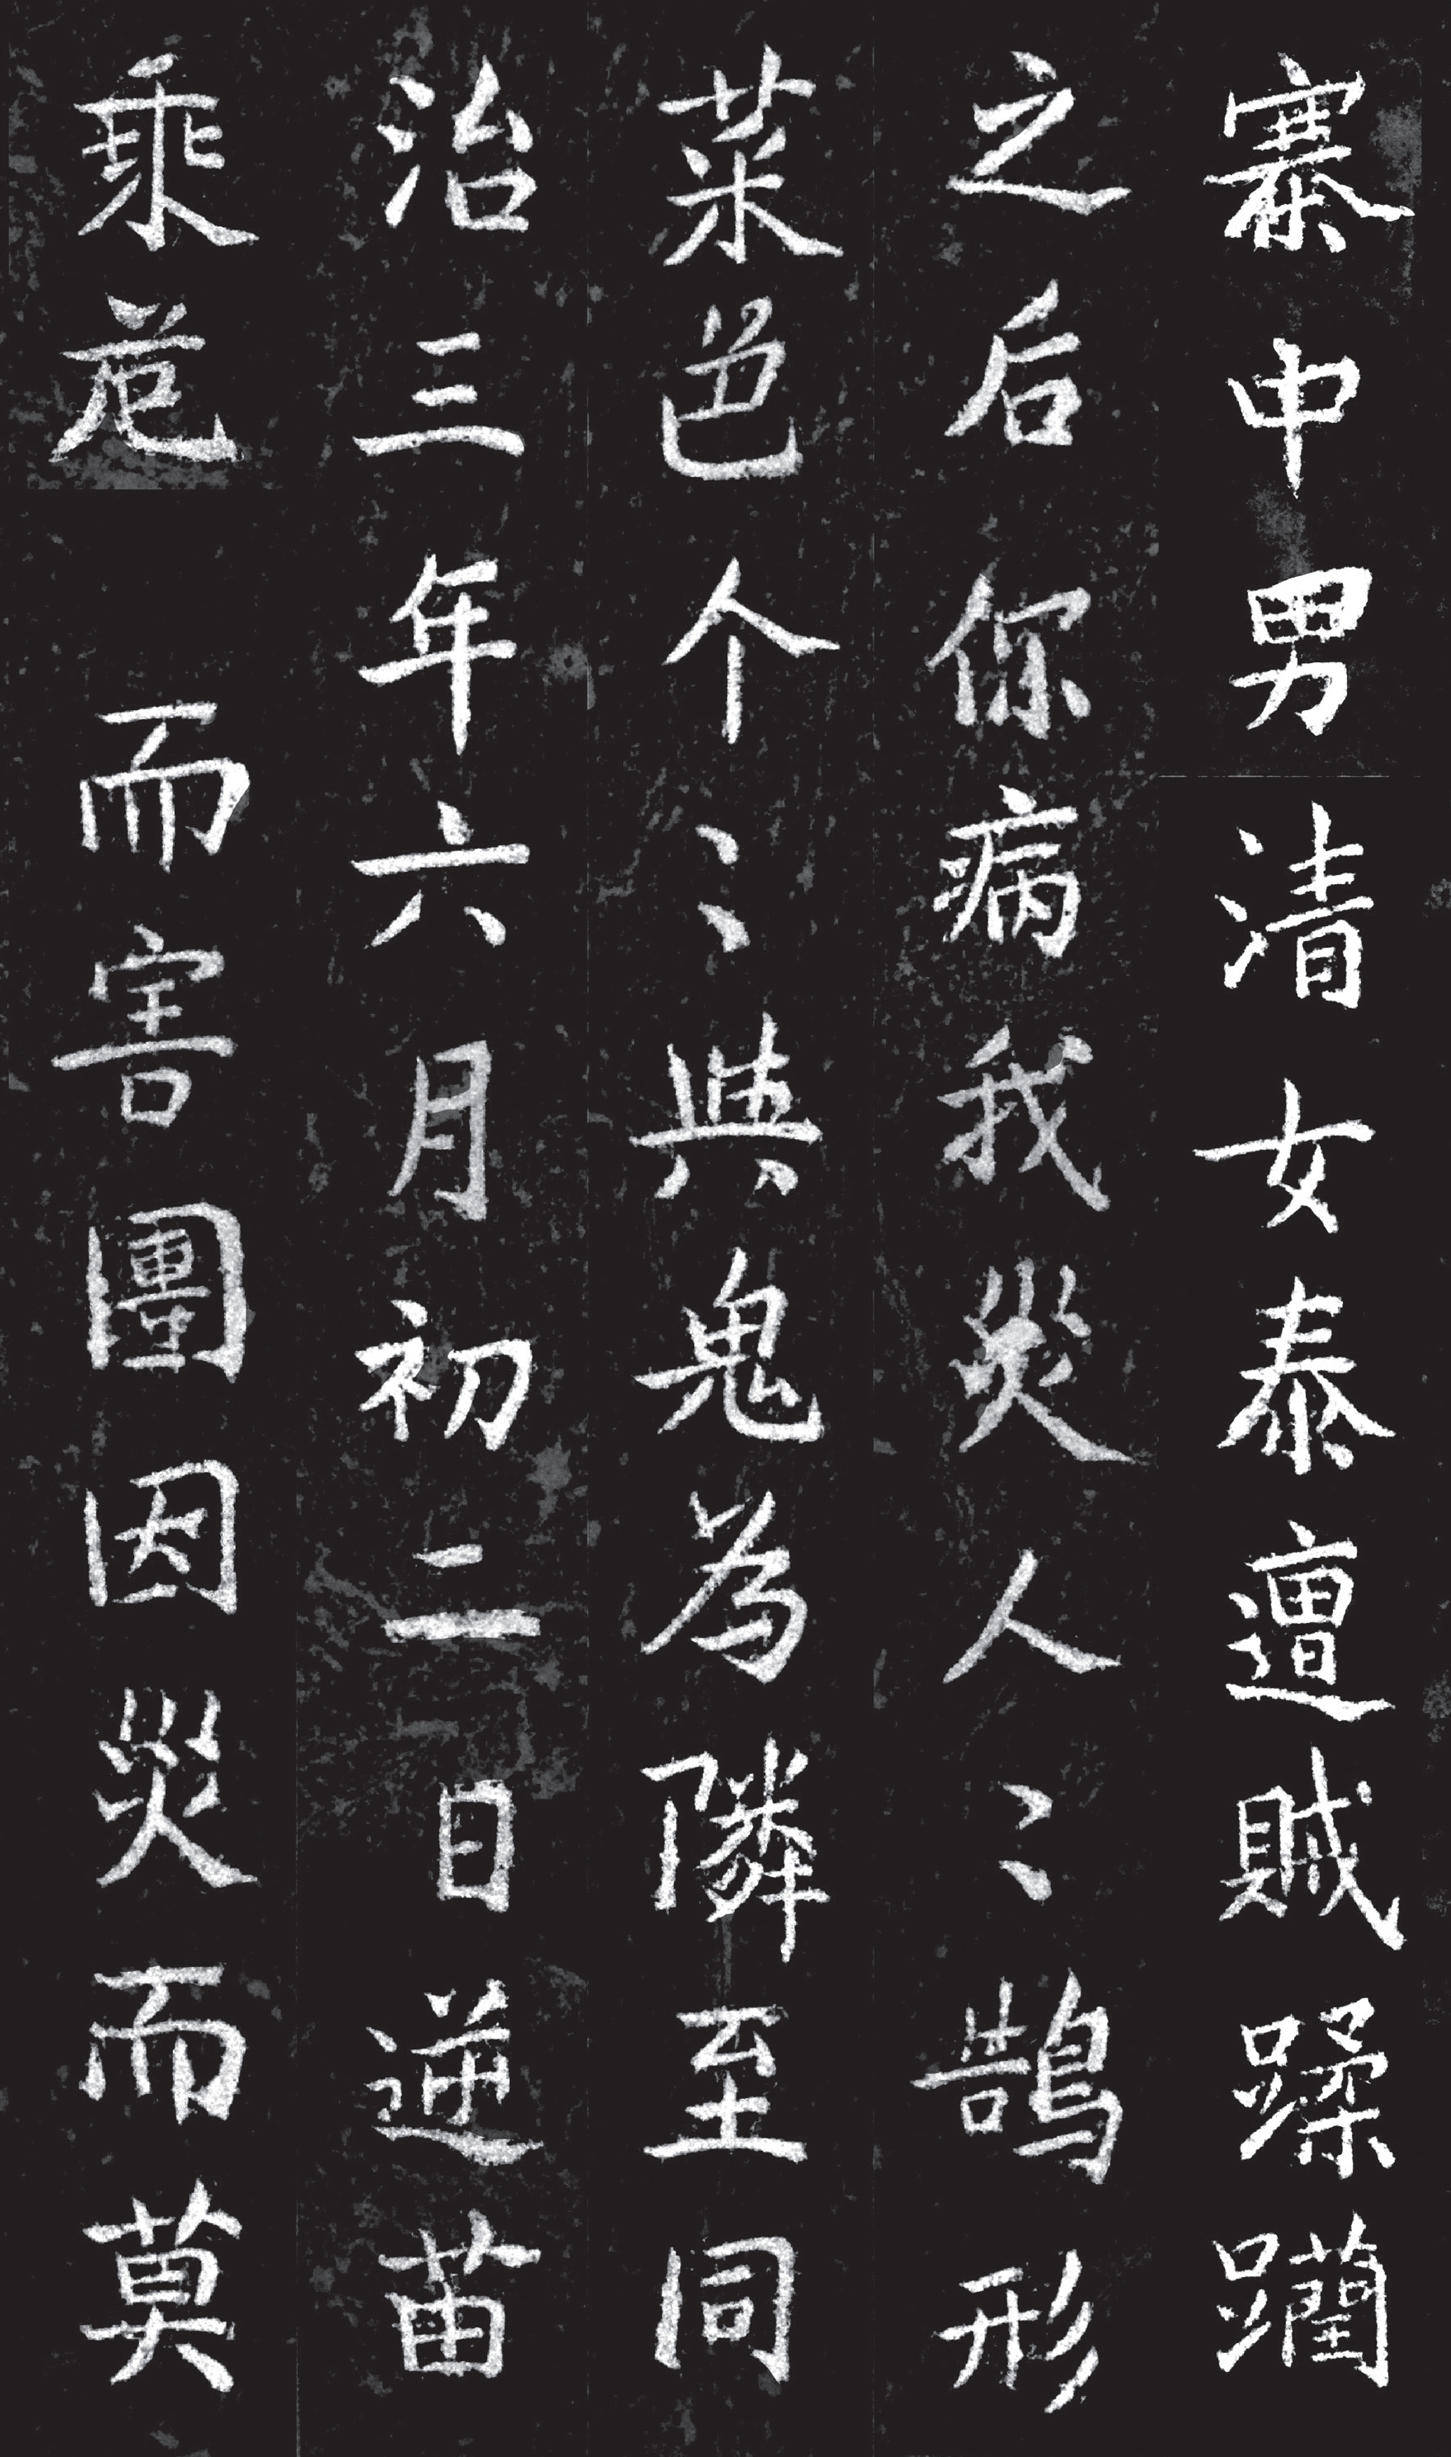 寨中男清女泰遭賊蹂躪
之后你病我災人〻鵠形
菜色个〻與鬼為隣至同
治三年六月初二日逆苗
乘危 而害圖因災而莫